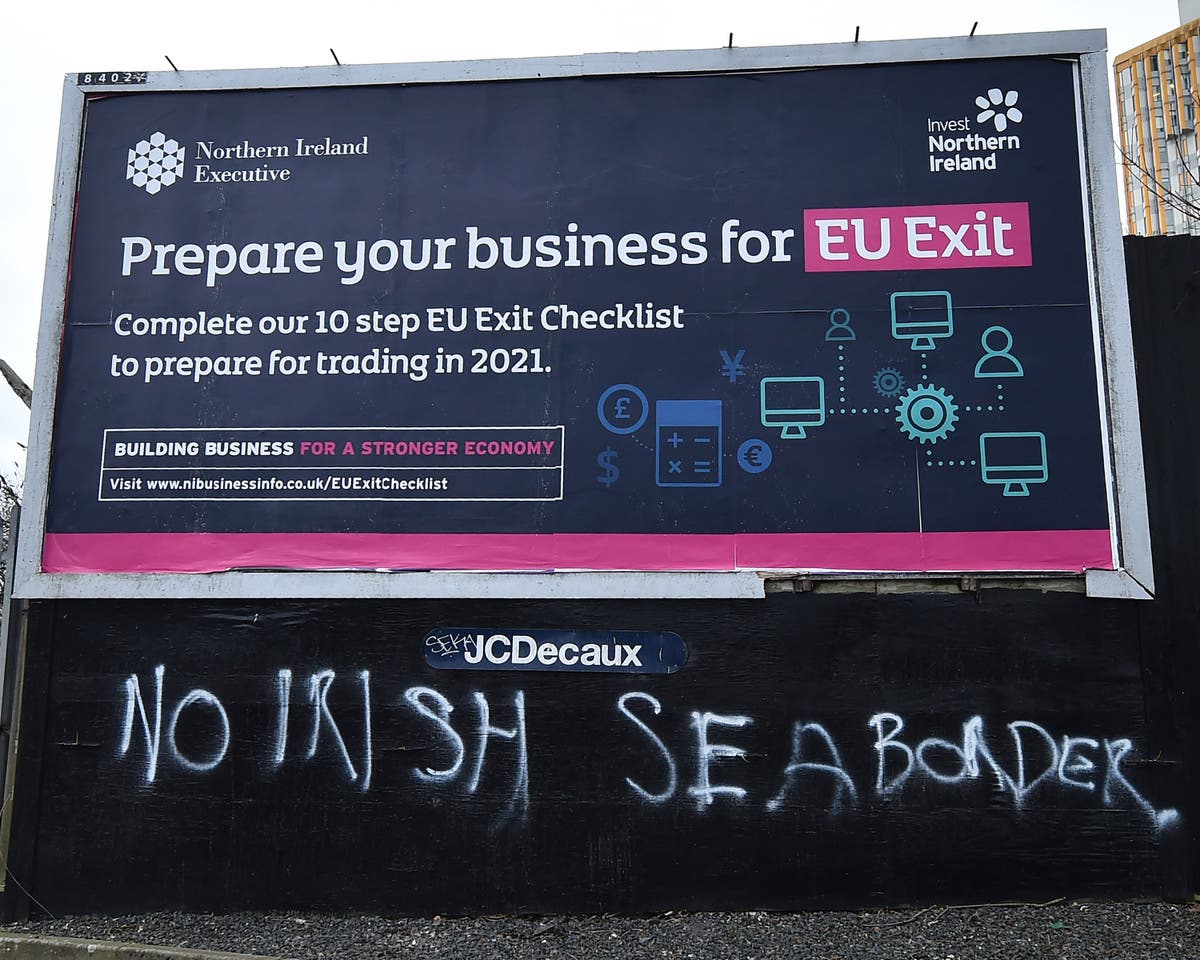 8402
Northern Ireland
Executive
Invest
Northern
Ireland
Prepare your business for EU Exit
Complete our 10 step EU Exit Checklist
to prepare for trading in 2021.
¥
£
$
€
+ −
× =
BUILDING BUSINESS FOR A STRONGER ECONOMY
Visit www.nibusinessinfo.co.uk/EUExitChecklist
SEKA
JCDecaux
NO IRISH SEA BORDER